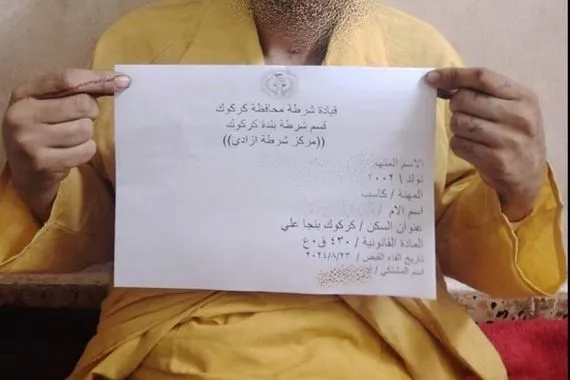 قيادة شرطة محافظة كركوك
قسم شرطة بلدة كركوك
((مركز شرطة ازادي))
الاسم المتهم
تولد \ ٢٠٠٢
المهنة / كاسب
اسم الام
عنوان السكن / كركوك بنجا علي
المادة القانونية / ٤٣٠ ق٠ع
تاريخ القاء القبض / ٢٠٢٤/٨/٢٣
اسم المشتكي /